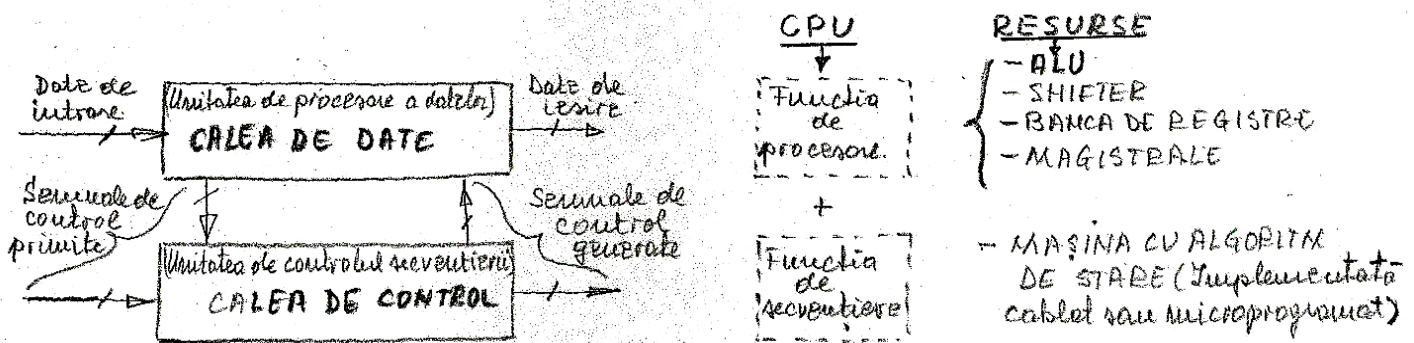 Date de
intrare
(Unitatea de procesare a datelor)
CALEA DE DATE
Date de
iesire
Semnale de
control
primite
Semnale de
control
generate
(Unitatea de controlul secventierii)
CALEA DE CONTROL
CPU
Functia
de
procesare.
+
Functia
de
secventiere
RESURSE
- ALU
- SHIFTER
- BANCA DE REGISTRE
- MAGISTRALE
- MAȘINA CU ALGORITM
DE STARE (Implementată
cablat sau microprogramat)